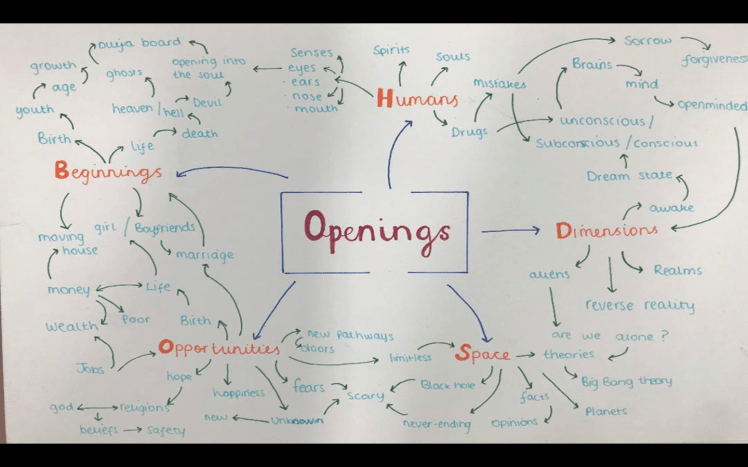 Openings
Humans
Spirits
Souls
mistakes
Drugs
Senses
eyes
· ears
· nose
· mouth
opening into
the soul
ouija board
ghosts
heaven/hell
Devil
death
Life
growth
age
youth
Birth
Beginnings
moving
house
girl / Boyfriends
marriage
money
Life
Poor
Wealth
Birth
Jobs
Opportunities
hope
religions
god
beliefs
safety
happiness
fears
unknown
new
scary
new pathways
doors
limitless
Space
Black hole
never-ending
facts
opinions
Planets
theories
Big Bang theory
are we alone?
Dimensions
aliens
reverse reality
Realms
awake
Dream state
Subconscious/conscious
unconscious/
Brains
mind
openminded
Sorrow
forgiveness